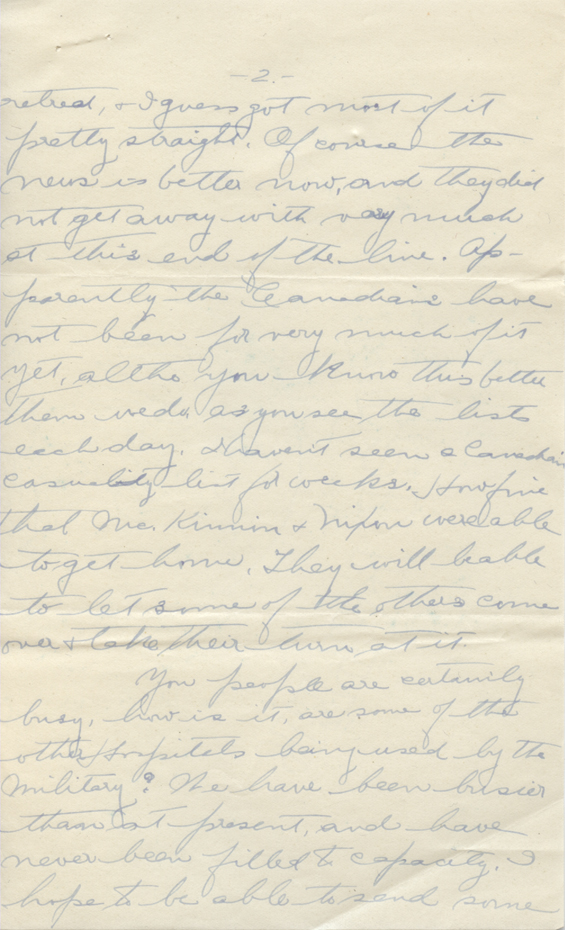 -2.-
retreat, & I guess got most of it
pretty straight. Of course the
news is better now, and they did
not get away with very much
at this end of the line. Ap-
parently the Canadians have
not been for very much of it
yet, altho you know this better
than we do, as you see the lists
each day. I haven't seen a Canadian
casualty list for weeks. How fine
that McKinnon & Nixon were able
to get home. They will be able
to let some of the others come
over & take their turn at it.
You people are certainly
busy, how is it, are some of the
other Hospitals being used by the
Military? We have been busier
than at present, and have
never been filled to capacity. I
hope to be able to send some